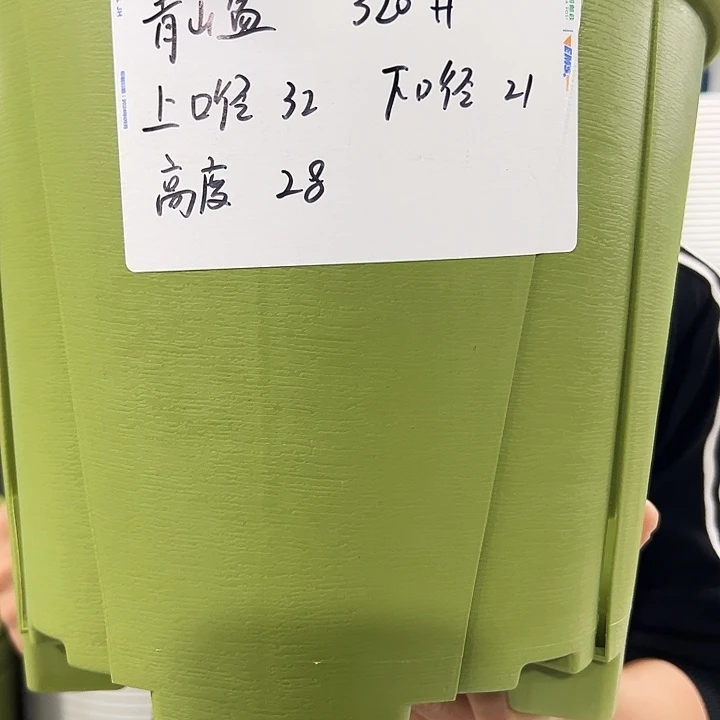 青山盆 320 H
上口径 32 下口径 21
高度 28
EMS